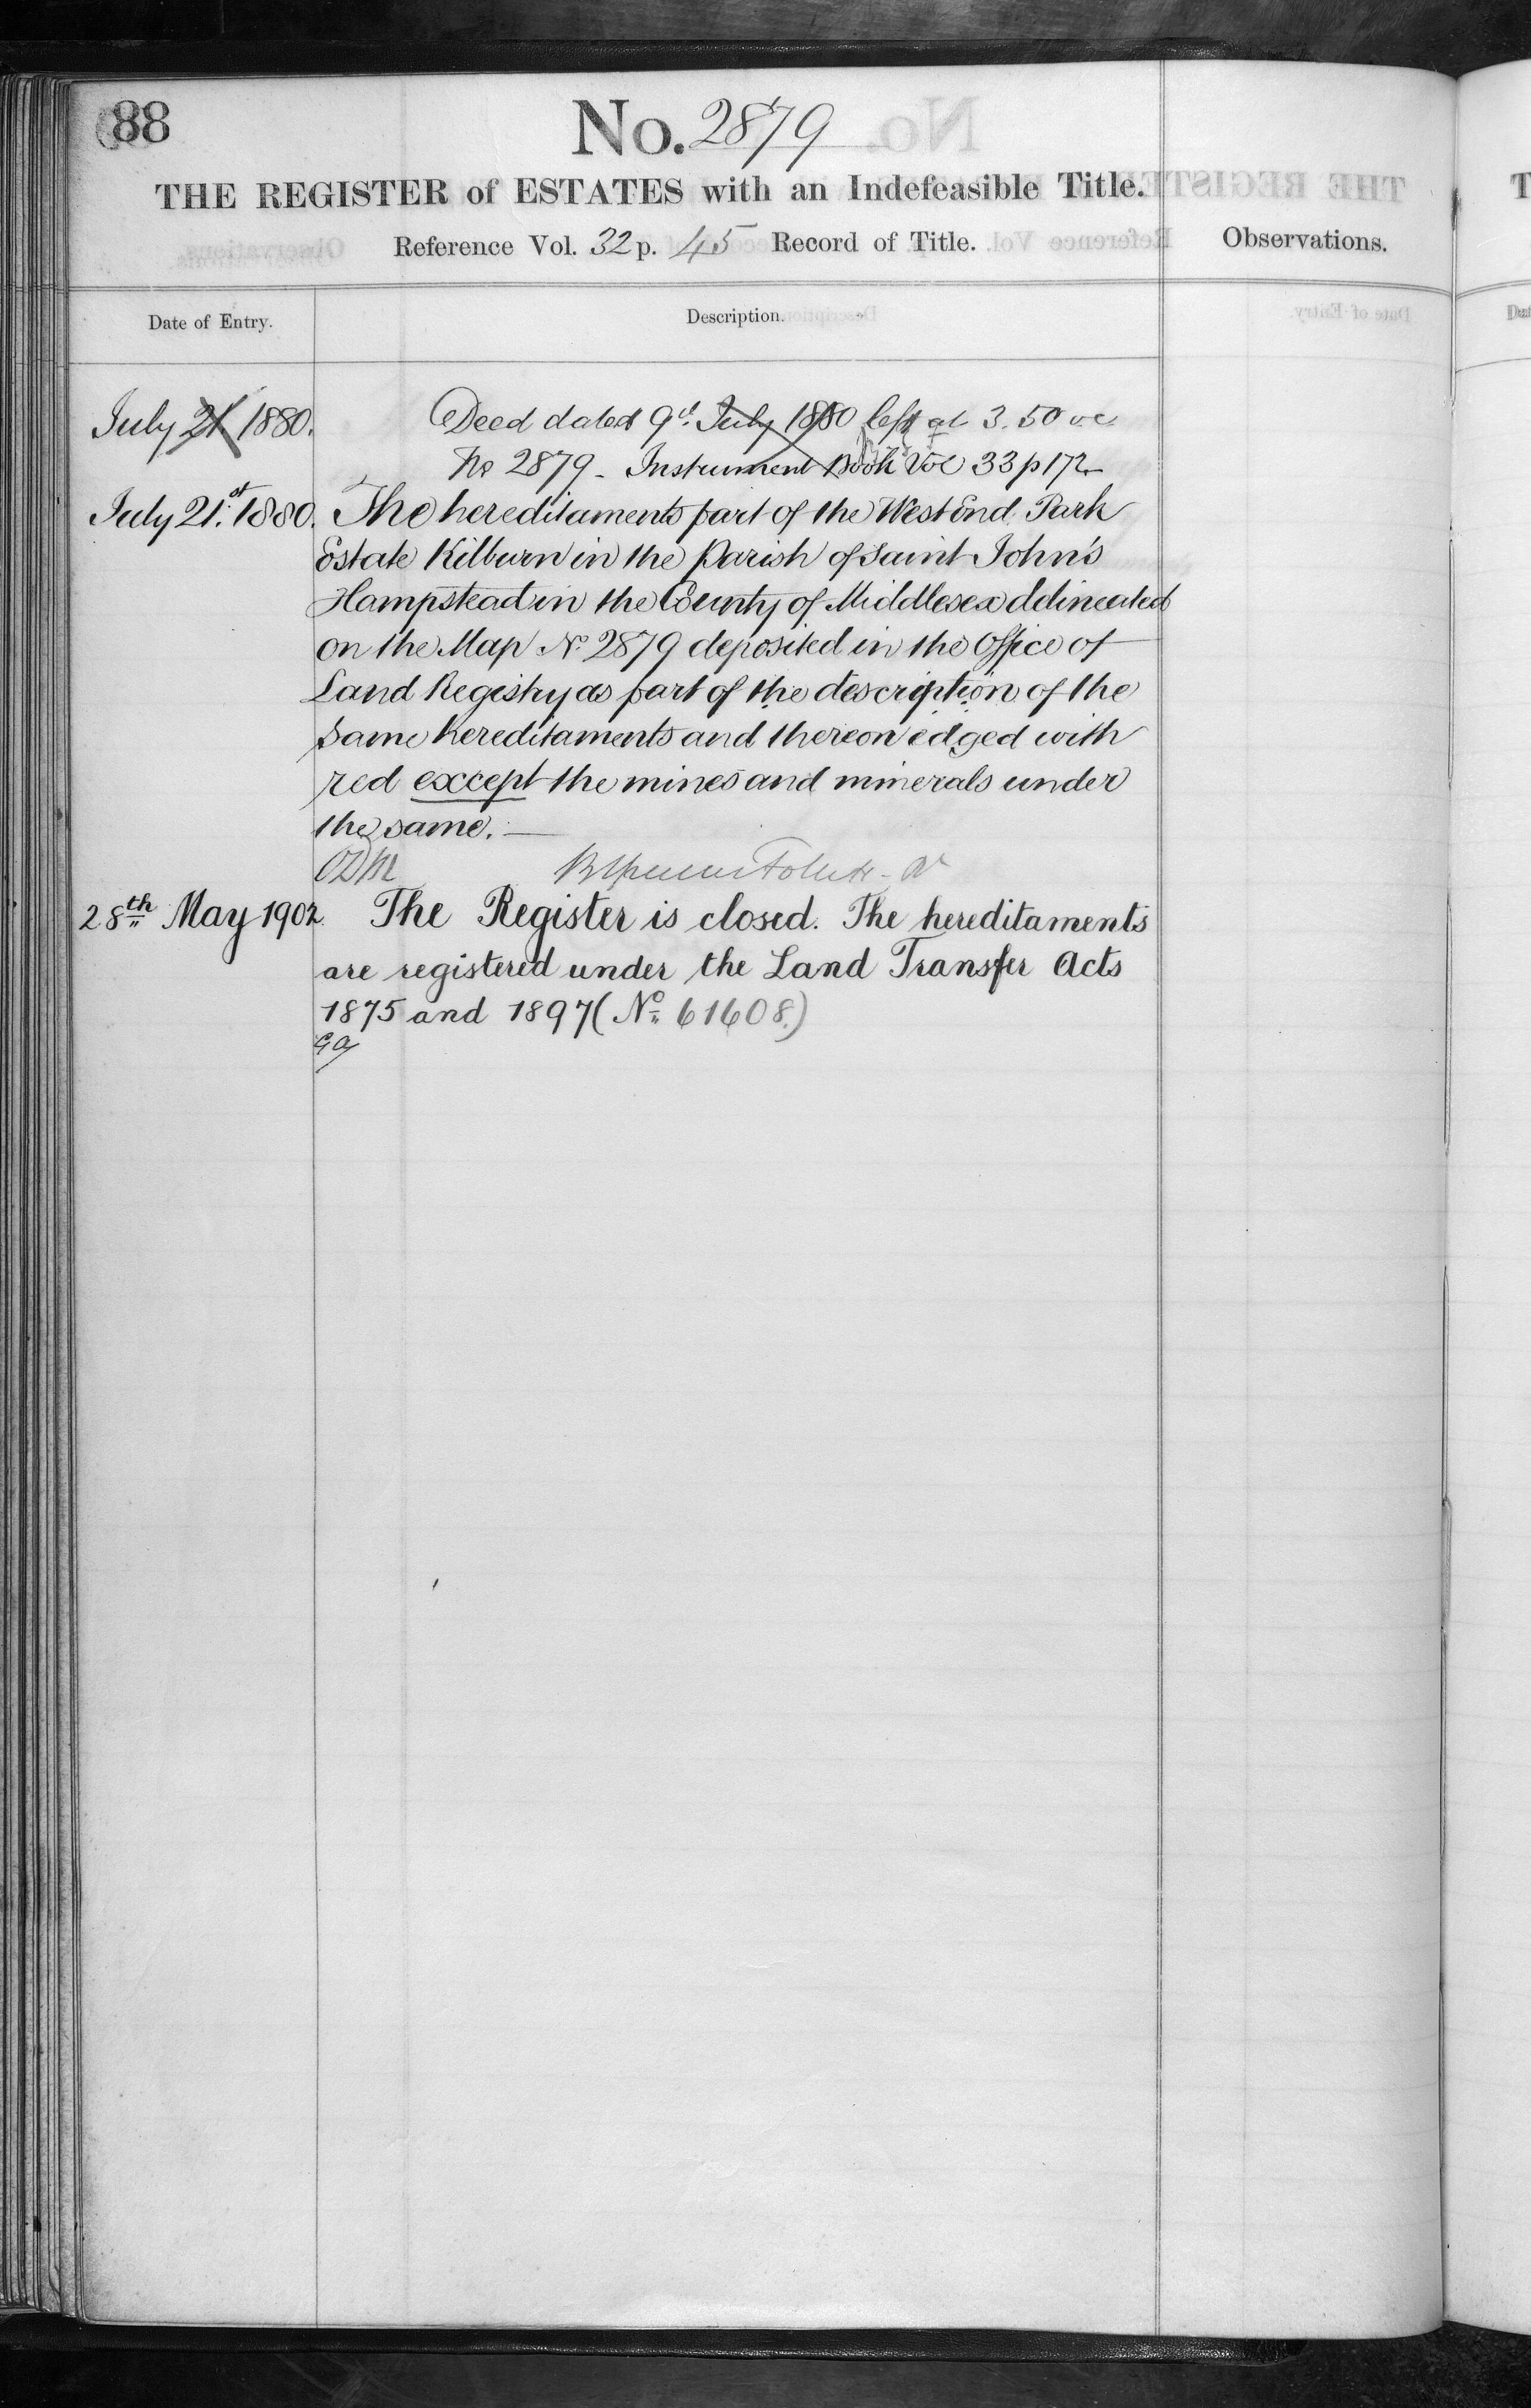 88
No. 2879
THE REGISTER of ESTATES with an Indefeasible Title.
Reference Vol. 32 p. 45 Record of Title.
Observations.
Date of Entry.
Description.
July 21 1880.
Deed dated 9th July 1880 left at 3.50
No 2879 - Instrument Book Vol 33 p 172
July 21st 1880. The hereditaments part of the West End Park
Estate Kilburn in the Parish of Saint John's
Hampstead in the County of Middlesex delineated
on the Map No. 2879 deposited in the Office of
Land Registry as part of the description of the
same hereditaments and thereon edged with
red except the mines and minerals under
the same.
28th May 1902. The Register is closed. The hereditaments
are registered under the Land Transfer Acts
1875 and 1897 (No. 61608.)